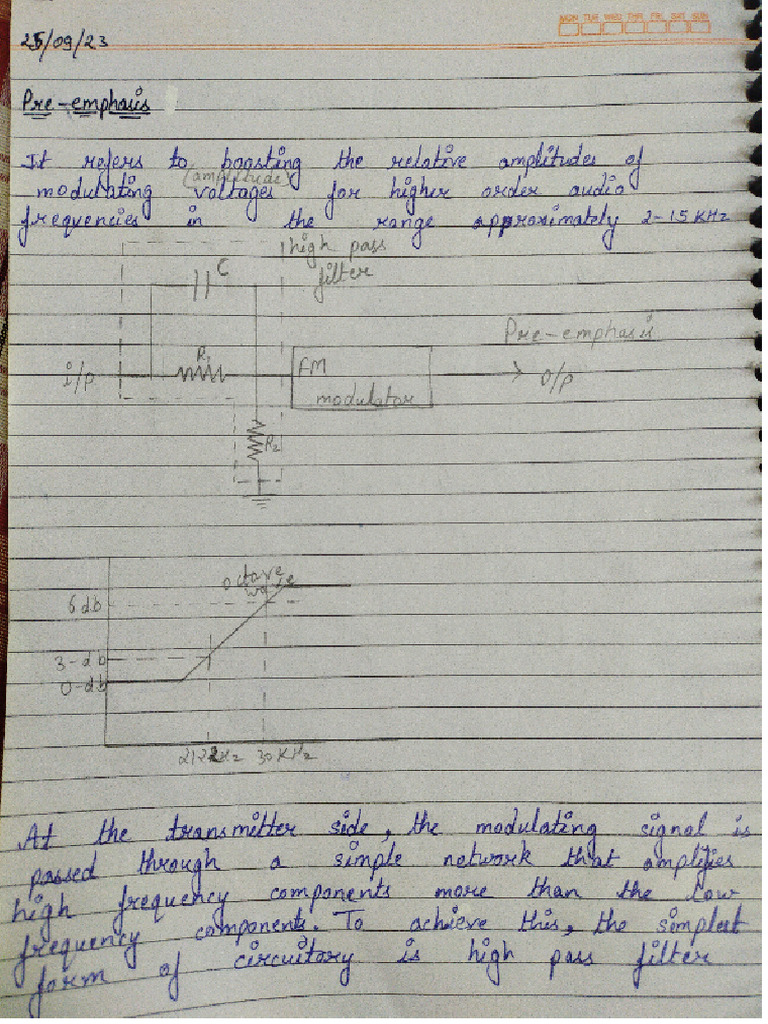 MON TUE WED THR FRI SAT SUN
25/09/23
Pre-emphasis
It refers to boosting the relative amplitudes of
(amplitude)
modulating voltages for higher order audio
frequencies in the range approximately 2-15 KHz
high pass
filter
C
R1
i/p
FM
modulator
Pre-emphasis
O/p
R2
octave
6 db
3-db
0-db
30 KHz
At the transmitter side, the modulating signal is
passed through a simple network that amplifies
high frequency components more than the low
frequency components. To achieve this, the simplest
form of circuitory is high pass filter